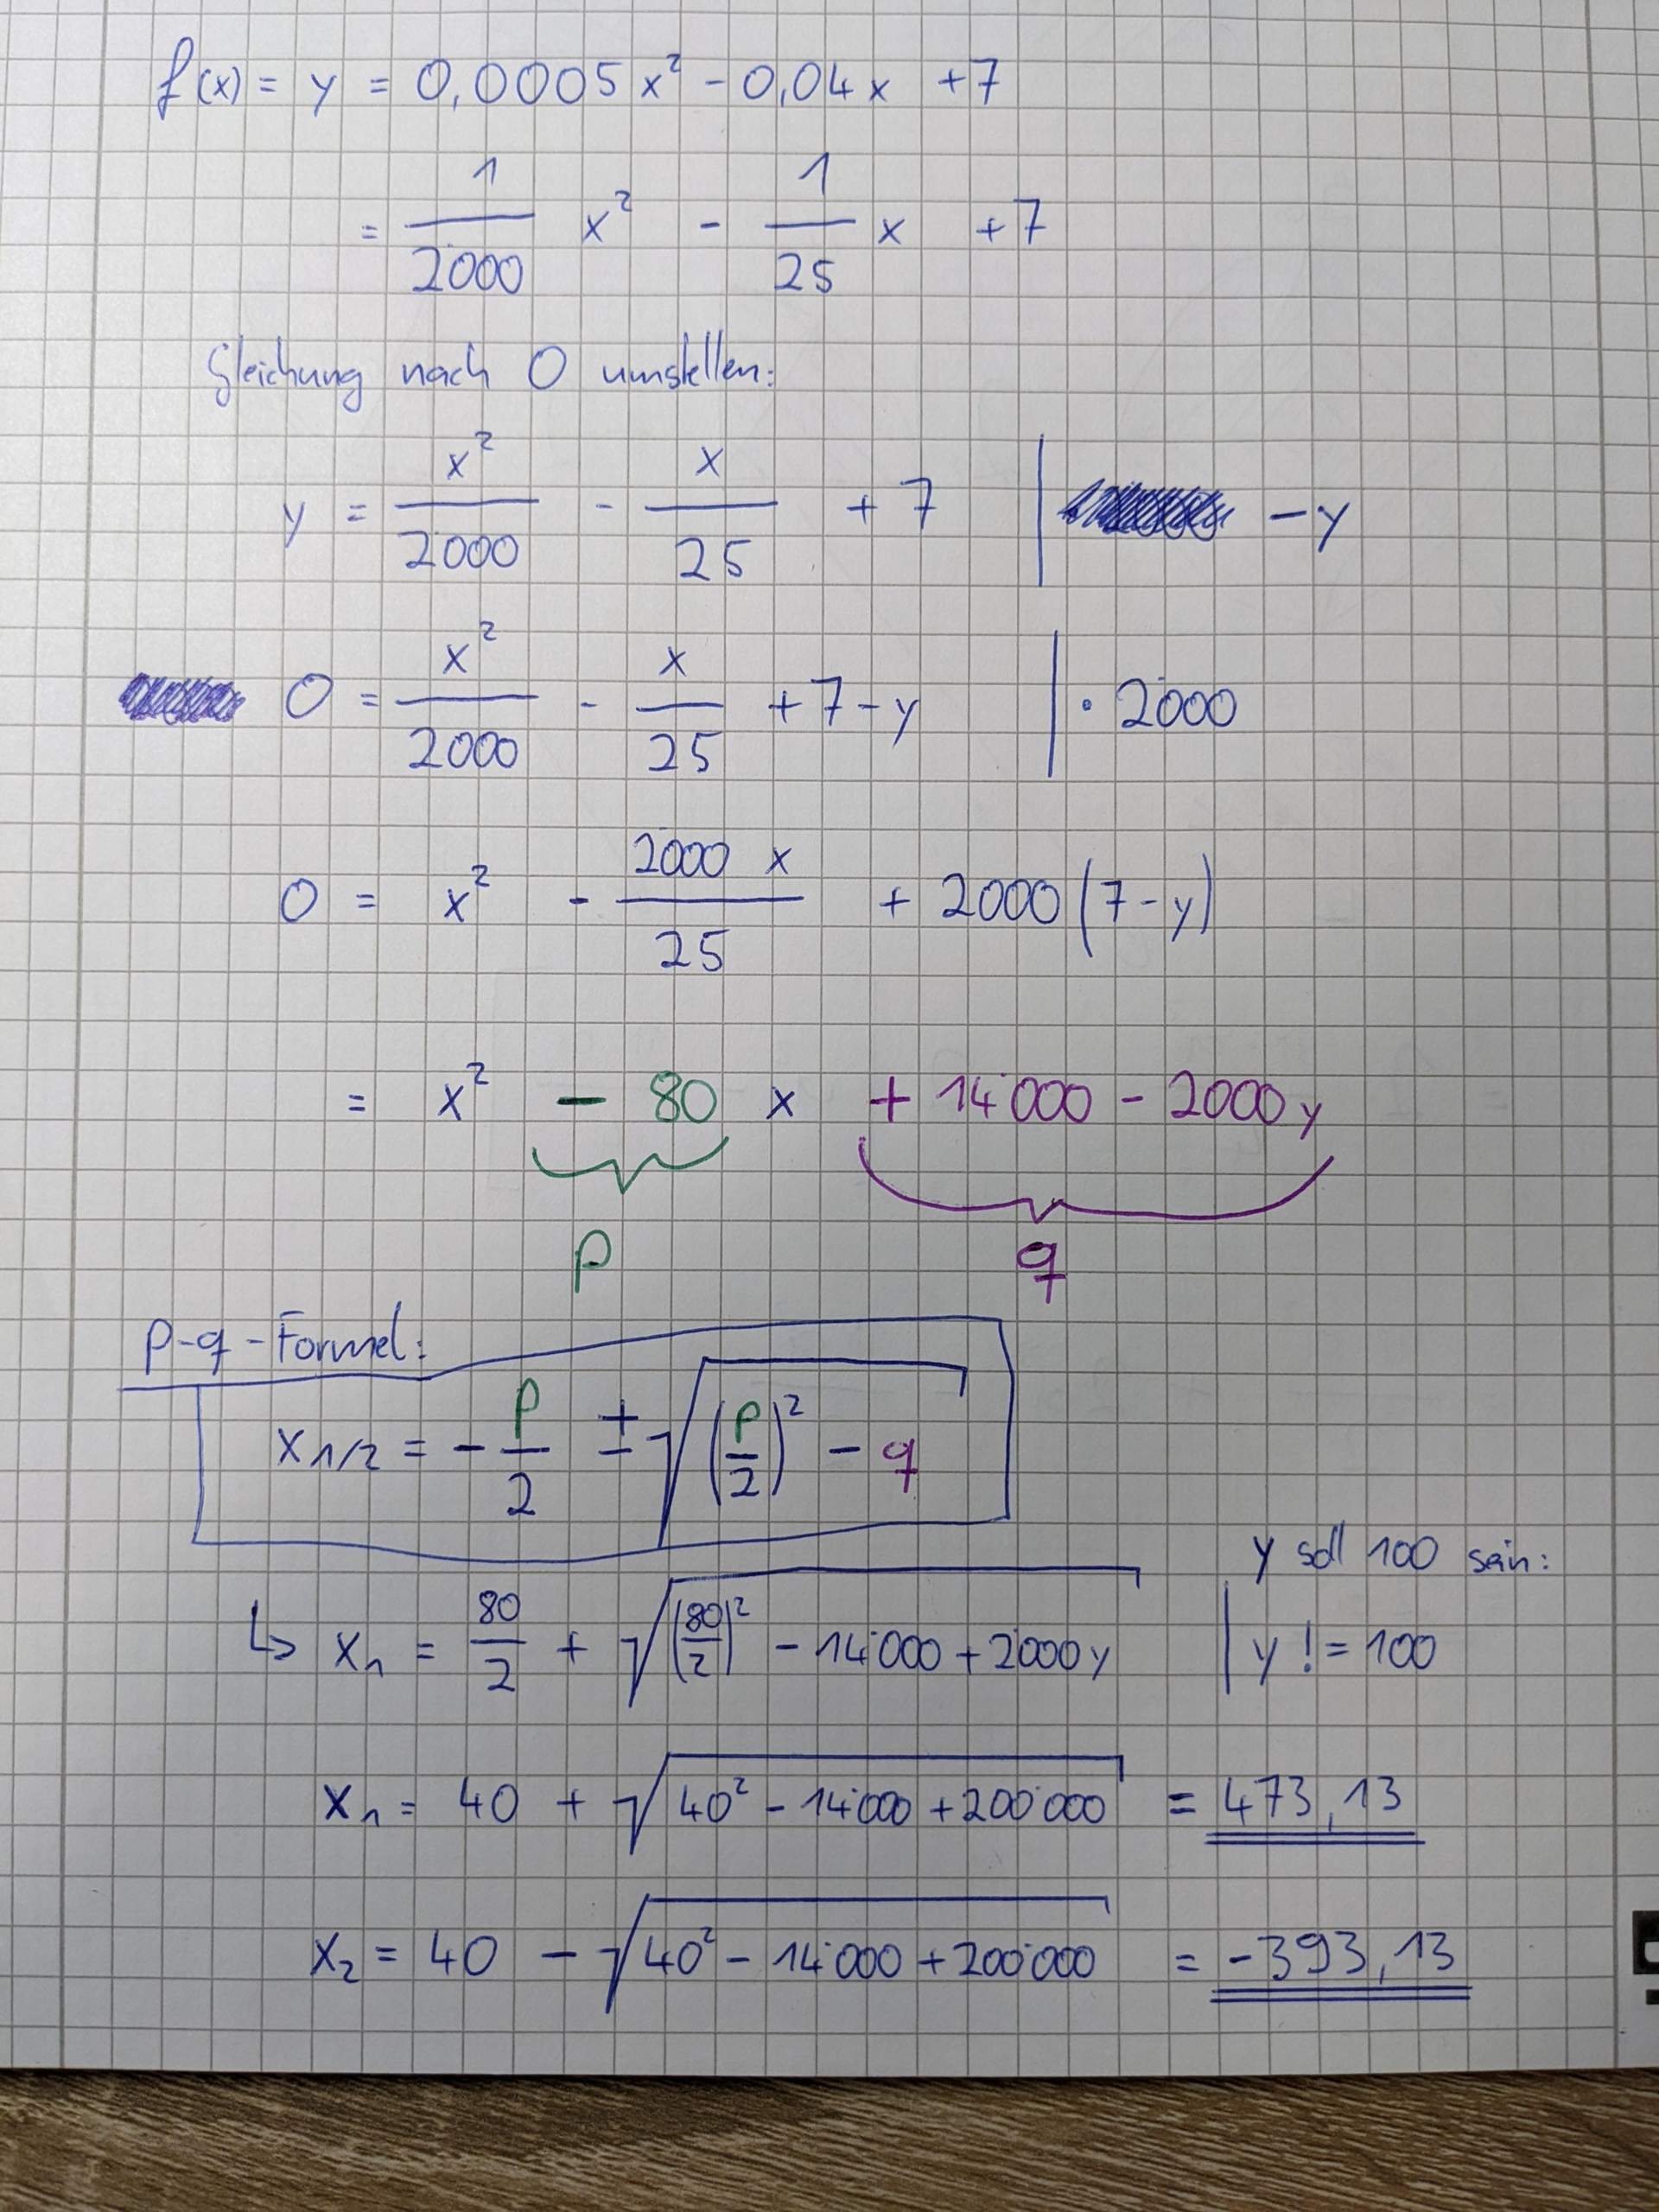 f(x) = y = 0,0005 x² - 0,04 x + 7
= 1/2000 x² - 1/25 x + 7
Gleichung nach 0 umstellen:
y = x²/2000 - x/25 + 7 | - y
0 = x²/2000 - x/25 + 7 - y | · 2000
0 = x² - 2000 x/25 + 2000 (7 - y)
= x² - 80 x + 14'000 - 2000 y
p q
p-q-Formel:
x1/2 = - p/2 ± √((p/2)² - q)
y soll 100 sein:
↳ x₁ = 80/2 + √((80/2)² - 14'000 + 2000 y) | y != 100
x₁ = 40 + √(40² - 14'000 + 200'000) = 473,13
x₂ = 40 - √(40² - 14'000 + 200'000) = -393,13